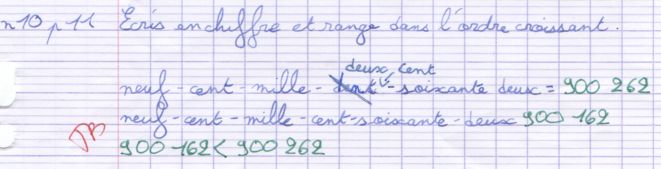 n°10 p 11 Écris en chiffre et range dans l'ordre croissant.
deux cent
neuf-cent-mille-cent-soixante deux = 900 262
neuf-cent-mille-cent-soixante-deux 900 162
TB
900 162 < 900 262